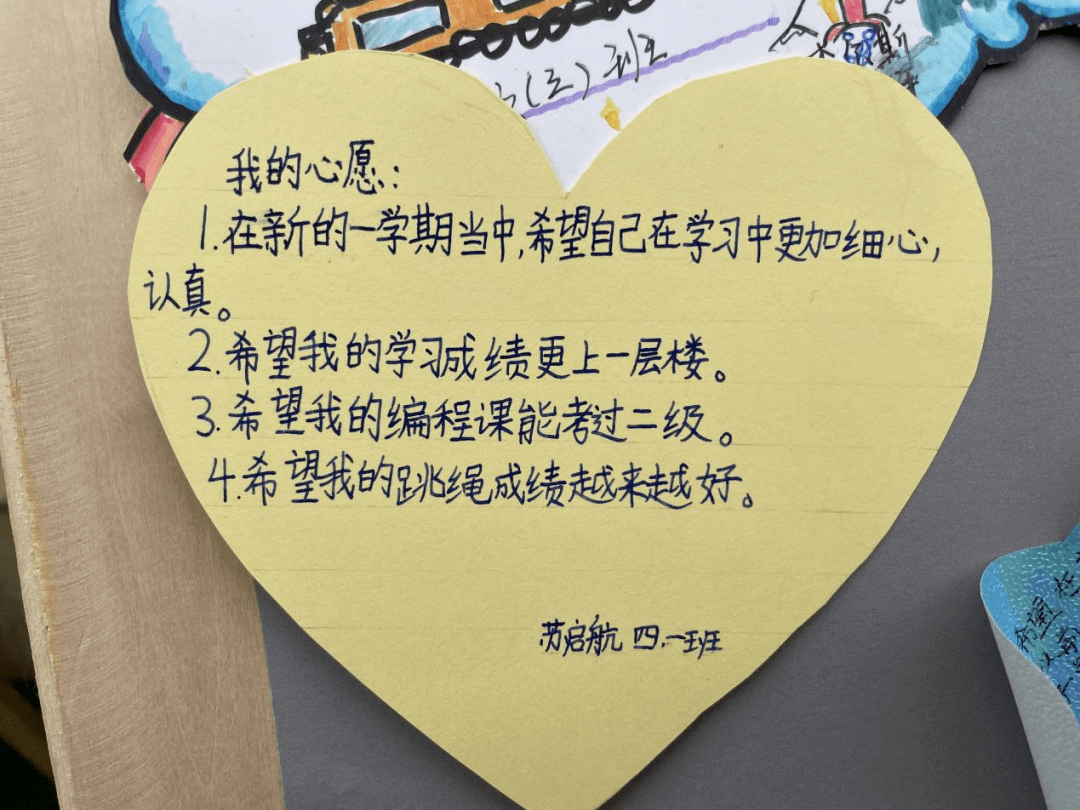 (三)班
我的心愿:
1.在新的一学期当中,希望自己在学习中更加细心,
认真。
2.希望我的学习成绩更上一层楼。
3.希望我的编程课能考过二级。
4.希望我的跳绳成绩越来越好。
苏启航 四.一班
希望